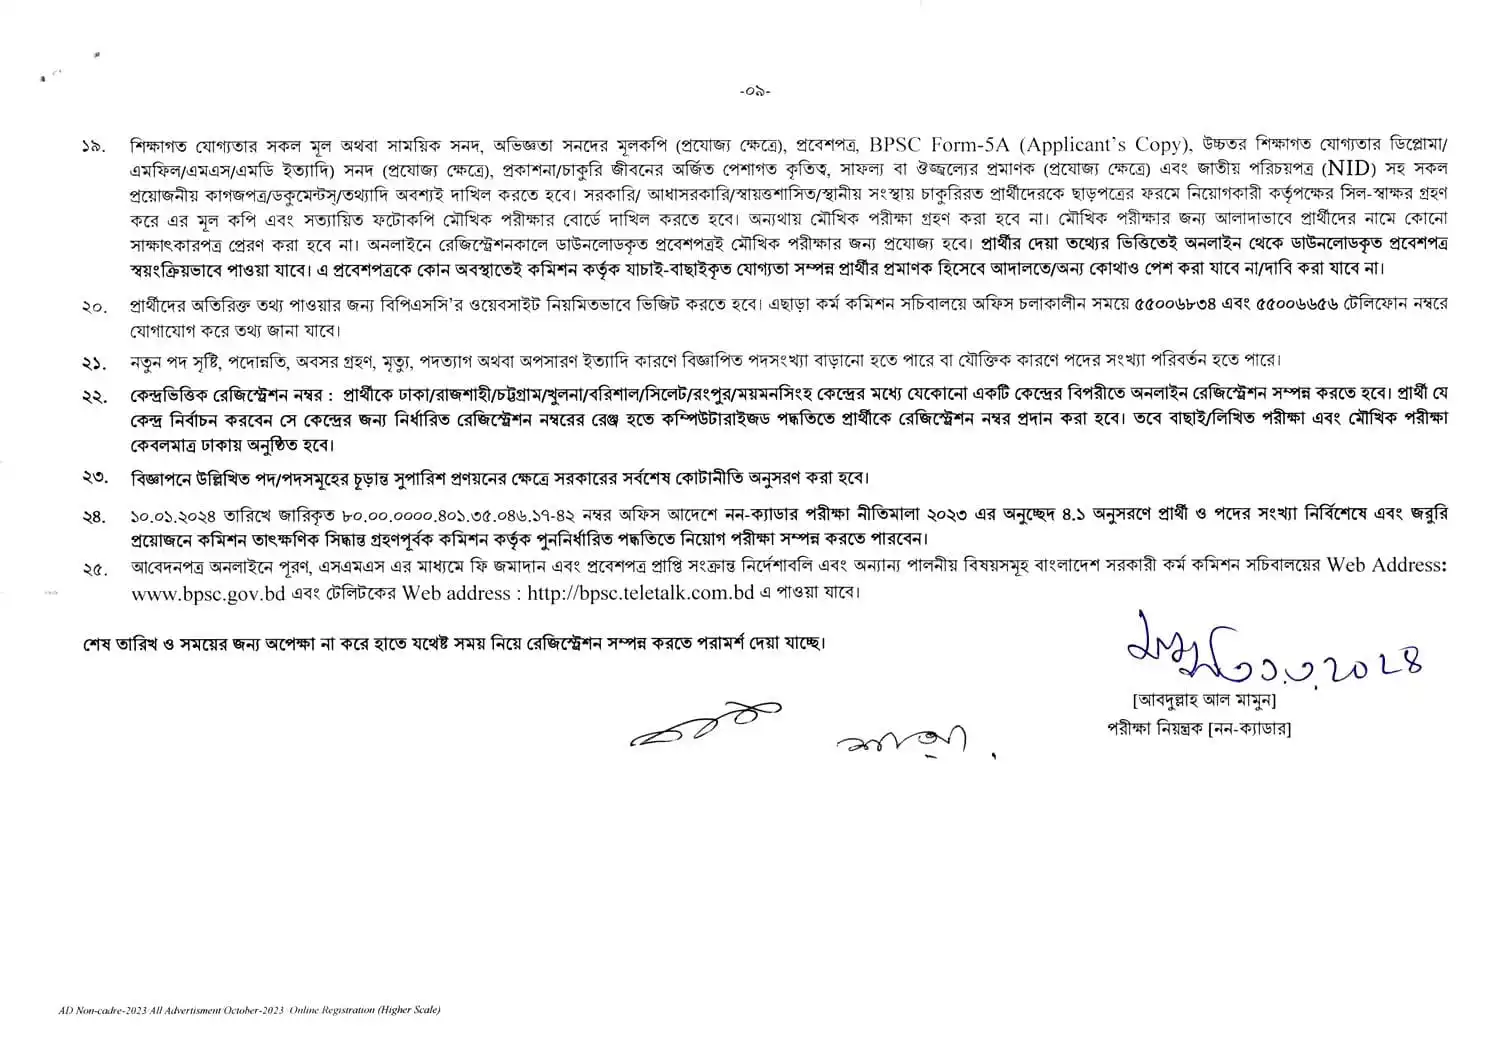 -০৯-
১৯. শিক্ষাগত যোগ্যতার সকল মূল অথবা সাময়িক সনদ, অভিজ্ঞতা সনদের মূলকপি (প্রযোজ্য ক্ষেত্রে), প্রবেশপত্র, BPSC Form-5A (Applicant's Copy), উচ্চতর শিক্ষাগত যোগ্যতার ডিপ্লোমা/
এমফিল/এমএস/এমডি ইত্যাদি) সনদ (প্রযোজ্য ক্ষেত্রে), প্রকাশনা/চাকুরি জীবনের অর্জিত পেশাগত কৃতিত্ব, সাফল্য বা ঔজ্জ্বল্যের প্রমাণক (প্রযোজ্য ক্ষেত্রে) এবং জাতীয় পরিচয়পত্র (NID) সহ সকল
প্রয়োজনীয় কাগজপত্র/ডকুমেন্টস্/তথ্যাদি অবশ্যই দাখিল করতে হবে। সরকারি/ আধাসরকারি/স্বায়ত্তশাসিত/স্থানীয় সংস্থায় চাকুরিরত প্রার্থীদেরকে ছাড়পত্রের ফরমে নিয়োগকারী কর্তৃপক্ষের সিল-স্বাক্ষর গ্রহণ
করে এর মূল কপি এবং সত্যায়িত ফটোকপি মৌখিক পরীক্ষার বোর্ডে দাখিল করতে হবে। অন্যথায় মৌখিক পরীক্ষা গ্রহণ করা হবে না। মৌখিক পরীক্ষার জন্য আলাদাভাবে প্রার্থীদের নামে কোনো
সাক্ষাৎকারপত্র প্রেরণ করা হবে না। অনলাইনে রেজিস্ট্রেশনকালে ডাউনলোডকৃত প্রবেশপত্রই মৌখিক পরীক্ষার জন্য প্রযোজ্য হবে। প্রার্থীর দেয়া তথ্যের ভিত্তিতেই অনলাইন থেকে ডাউনলোডকৃত প্রবেশপত্র
স্বয়ংক্রিয়ভাবে পাওয়া যাবে। এ প্রবেশপত্রকে কোন অবস্থাতেই কমিশন কর্তৃক যাচাই-বাছাইকৃত যোগ্যতা সম্পন্ন প্রার্থীর প্রমাণক হিসেবে আদালতে/অন্য কোথাও পেশ করা যাবে না/দাবি করা যাবে না।
২০. প্রার্থীদের অতিরিক্ত তথ্য পাওয়ার জন্য বিপিএসসি'র ওয়েবসাইট নিয়মিতভাবে ভিজিট করতে হবে। এছাড়া কর্ম কমিশন সচিবালয়ে অফিস চলাকালীন সময়ে ৫৫০০৬৮৩৪ এবং ৫৫০০৬৬৫৬ টেলিফোন নম্বরে
যোগাযোগ করে তথ্য জানা যাবে।
২১. নতুন পদ সৃষ্টি, পদোন্নতি, অবসর গ্রহণ, মৃত্যু, পদত্যাগ অথবা অপসারণ ইত্যাদি কারণে বিজ্ঞাপিত পদসংখ্যা বাড়ানো হতে পারে বা যৌক্তিক কারণে পদের সংখ্যা পরিবর্তন হতে পারে।
২২. কেন্দ্রভিত্তিক রেজিস্ট্রেশন নম্বর : প্রার্থীকে ঢাকা/রাজশাহী/চট্টগ্রাম/খুলনা/বরিশাল/সিলেট/রংপুর/ময়মনসিংহ কেন্দ্রের মধ্যে যেকোনো একটি কেন্দ্রের বিপরীতে অনলাইন রেজিস্ট্রেশন সম্পন্ন করতে হবে। প্রার্থী যে
কেন্দ্র নির্বাচন করবেন সে কেন্দ্রের জন্য নির্ধারিত রেজিস্ট্রেশন নম্বরের রেঞ্জ হতে কম্পিউটারাইজড পদ্ধতিতে প্রার্থীকে রেজিস্ট্রেশন নম্বর প্রদান করা হবে। তবে বাছাই/লিখিত পরীক্ষা এবং মৌখিক পরীক্ষা
কেবলমাত্র ঢাকায় অনুষ্ঠিত হবে।
২৩. বিজ্ঞাপনে উল্লিখিত পদ/পদসমূহের চূড়ান্ত সুপারিশ প্রণয়নের ক্ষেত্রে সরকারের সর্বশেষ কোটানীতি অনুসরণ করা হবে।
২৪. ১০.০১.২০২৪ তারিখে জারিকৃত ৮০.০০.০০০০.৪০১.৩৫.০৪৬.১৭-৪২ নম্বর অফিস আদেশে নন-ক্যাডার পরীক্ষা নীতিমালা ২০২৩ এর অনুচ্ছেদ ৪.১ অনুসরণে প্রার্থী ও পদের সংখ্যা নির্বিশেষে এবং জরুরি
প্রয়োজনে কমিশন তাৎক্ষণিক সিদ্ধান্ত গ্রহণপূর্বক কমিশন কর্তৃক পুননির্ধারিত পদ্ধতিতে নিয়োগ পরীক্ষা সম্পন্ন করতে পারবেন।
২৫. আবেদনপত্র অনলাইনে পূরণ, এসএমএস এর মাধ্যমে ফি জমাদান এবং প্রবেশপত্র প্রাপ্তি সংক্রান্ত নির্দেশাবলি এবং অন্যান্য পালনীয় বিষয়সমূহ বাংলাদেশ সরকারী কর্ম কমিশন সচিবালয়ের Web Address:
www.bpsc.gov.bd এবং টেলিটকের Web address : http://bpsc.teletalk.com.bd এ পাওয়া যাবে।
শেষ তারিখ ও সময়ের জন্য অপেক্ষা না করে হাতে যথেষ্ট সময় নিয়ে রেজিস্ট্রেশন সম্পন্ন করতে পরামর্শ দেয়া যাচ্ছে।
৩১.৩.২০২৪
[আবদুল্লাহ আল মামুন]
পরীক্ষা নিয়ন্ত্রক [নন-ক্যাডার]
AD Non-cadre-2023/All Advertisment/October-2023 Online Registration (Higher Scale)